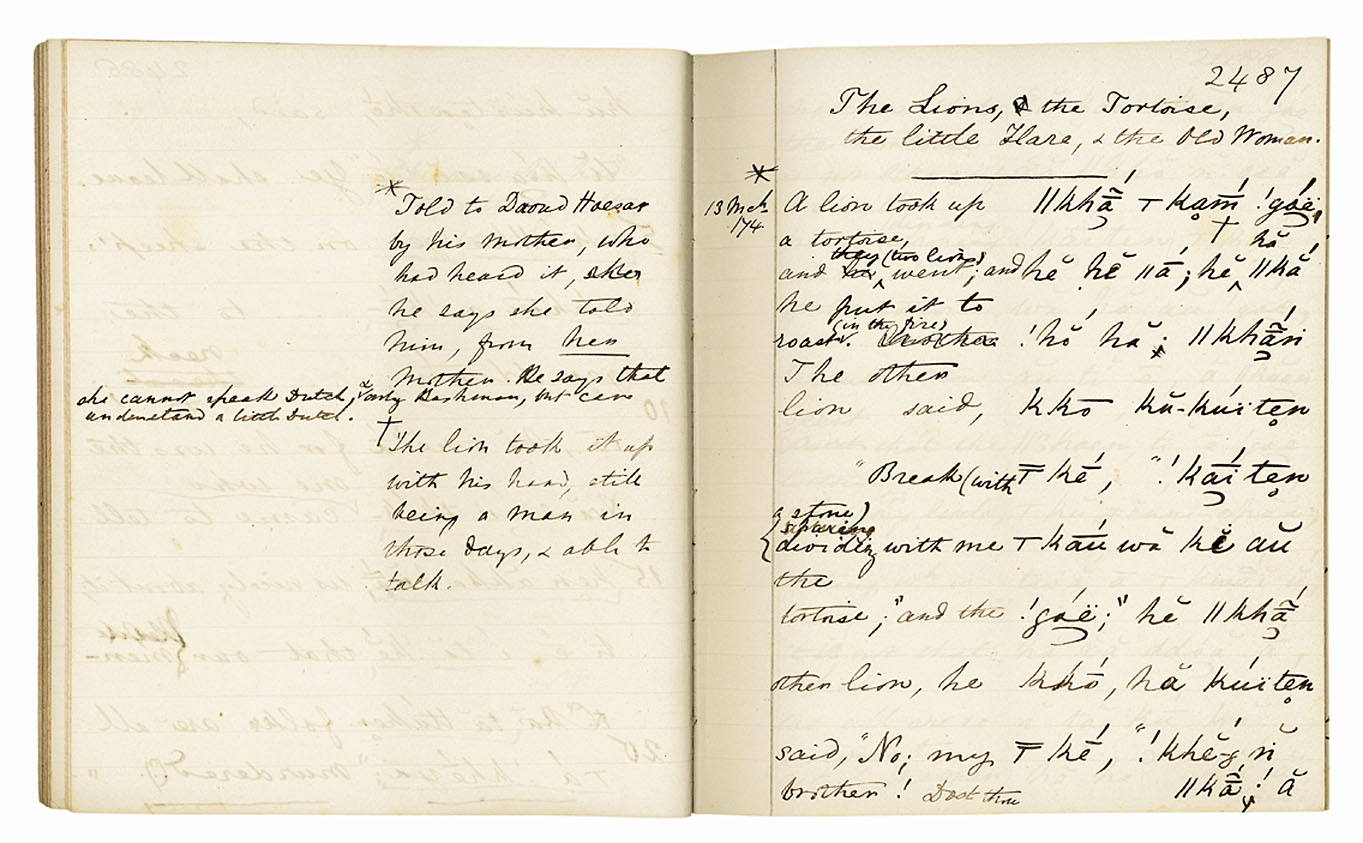 * Told to Daoud Hoesar
by his mother, who
had heard it,
he says she told
him, from her
mother. He says that
she cannot speak Dutch, & only Bushman, but can
understand a little Dutch.
† The lion took it up
with his hand, still
being a man in
those days, & able to
talk.
2487
The Lions, & the Tortoise,
the little Hare, & the Old Woman.
*
13 Mch A lion took up ǁkhā́̃ T kạḿ !góë,
/74 a tortoise, † hă
they (two lions)
and went; and hĕ hĕ ǁá; hĕ ǁkắ
he put it to
(in the fire)
roast. !hŏ́ hă; ǁkhā́̃
The other
lion said, kkō kŭ-kúitẹn
"Break (with T ké, "!kā́itẹn
a stone)
sharing
dividing with me T káú wă kĕ aŭ
the
tortoise;" and the !góë;" hĕ ǁkhā́̃
other lion, he kkó, hă kúitẹn
said, "No; my T ké, "!khĕ́-g
brother! Dost thou ǁkā̃́! ă